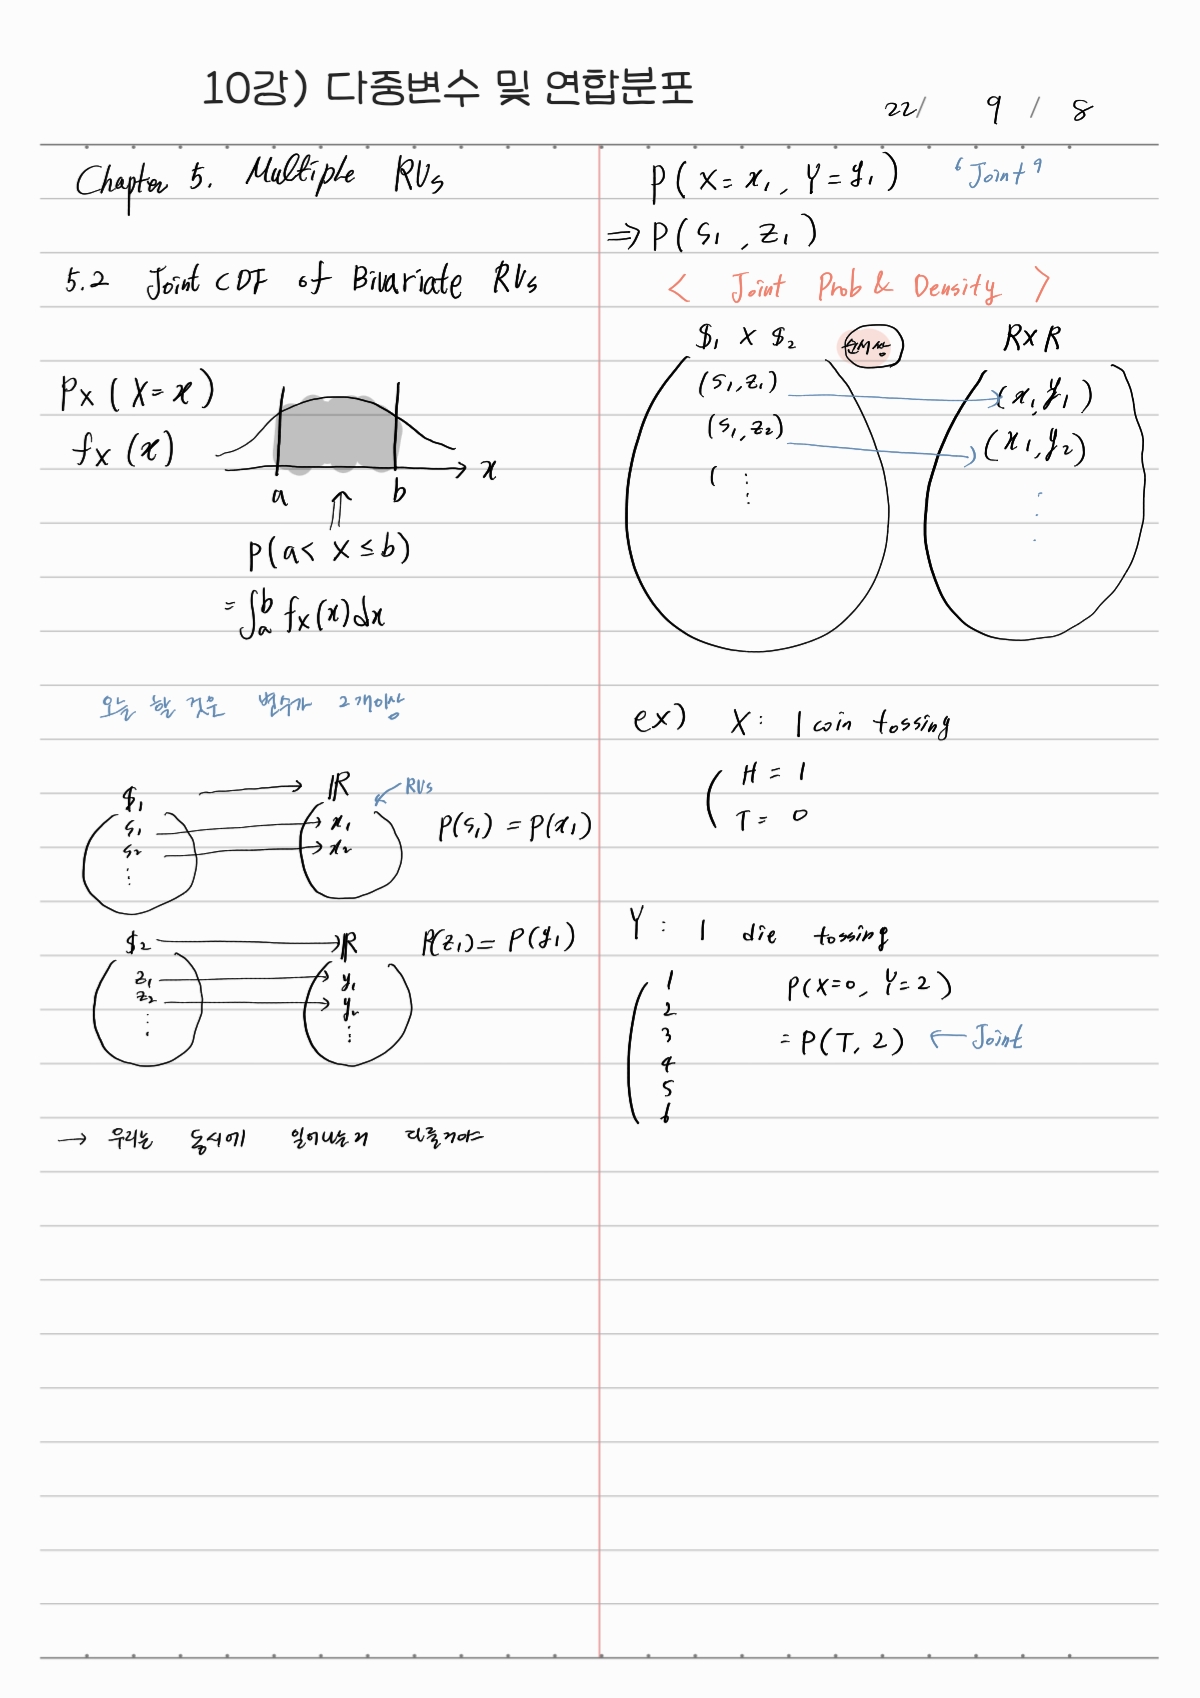 10강) 다중변수 및 연합분포
22/ 9 / 8
Chapter 5. Multiple RVs
5.2 Joint CDF of Bivariate RVs
Px ( X = x )
fx (x)
x
a b
P(a < X ≤ b)
= ∫ₐᵇ fx(x)dx
오늘 할 것은 변수가 2개이상
$₁ → ℝ
RVs
s₁ x₁
s₂ x₂
⋮
P(s₁) = P(x₁)
$₂ → ℝ
P(z₁) = P(y₁)
z₁ y₁
z₂ y₂
⋮ ⋮
→ 우리는 동시에 일어나는거 다룰거야
P( X = x₁, Y = y₁ ) ‘Joint’
⇒ P( s₁ , z₁ )
< Joint Prob & Density >
$₁ X $₂ 순서쌍 R X R
(s₁, z₁) (x₁, y₁)
(s₁, z₂) (x₁, y₂)
( ⋮ ⋮
ex) X : 1 coin tossing
H = 1
T = 0
Y : 1 die tossing
1
2
3
4
5
6
P(X=0, Y=2)
= P(T, 2) ← Joint